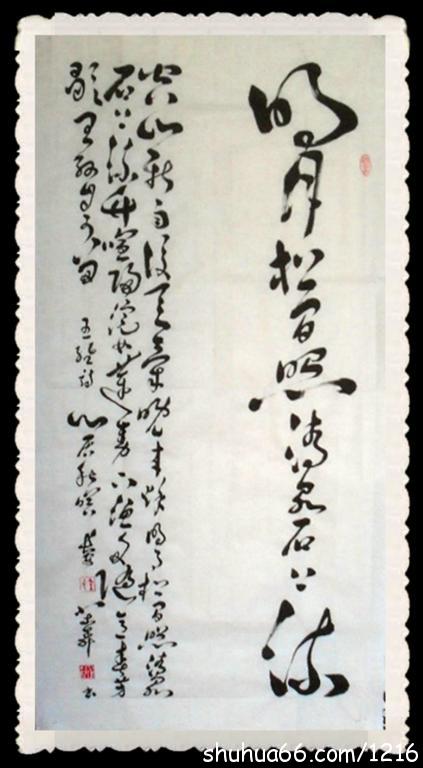 明月松间照清泉石上流
空山新雨後天氣晚来秋明月松间照清泉
石上流竹喧歸浣女蓮動下漁舟随意春芳
歇王孫自可留 王維詩 山居秋暝
shuhua66.com/1216